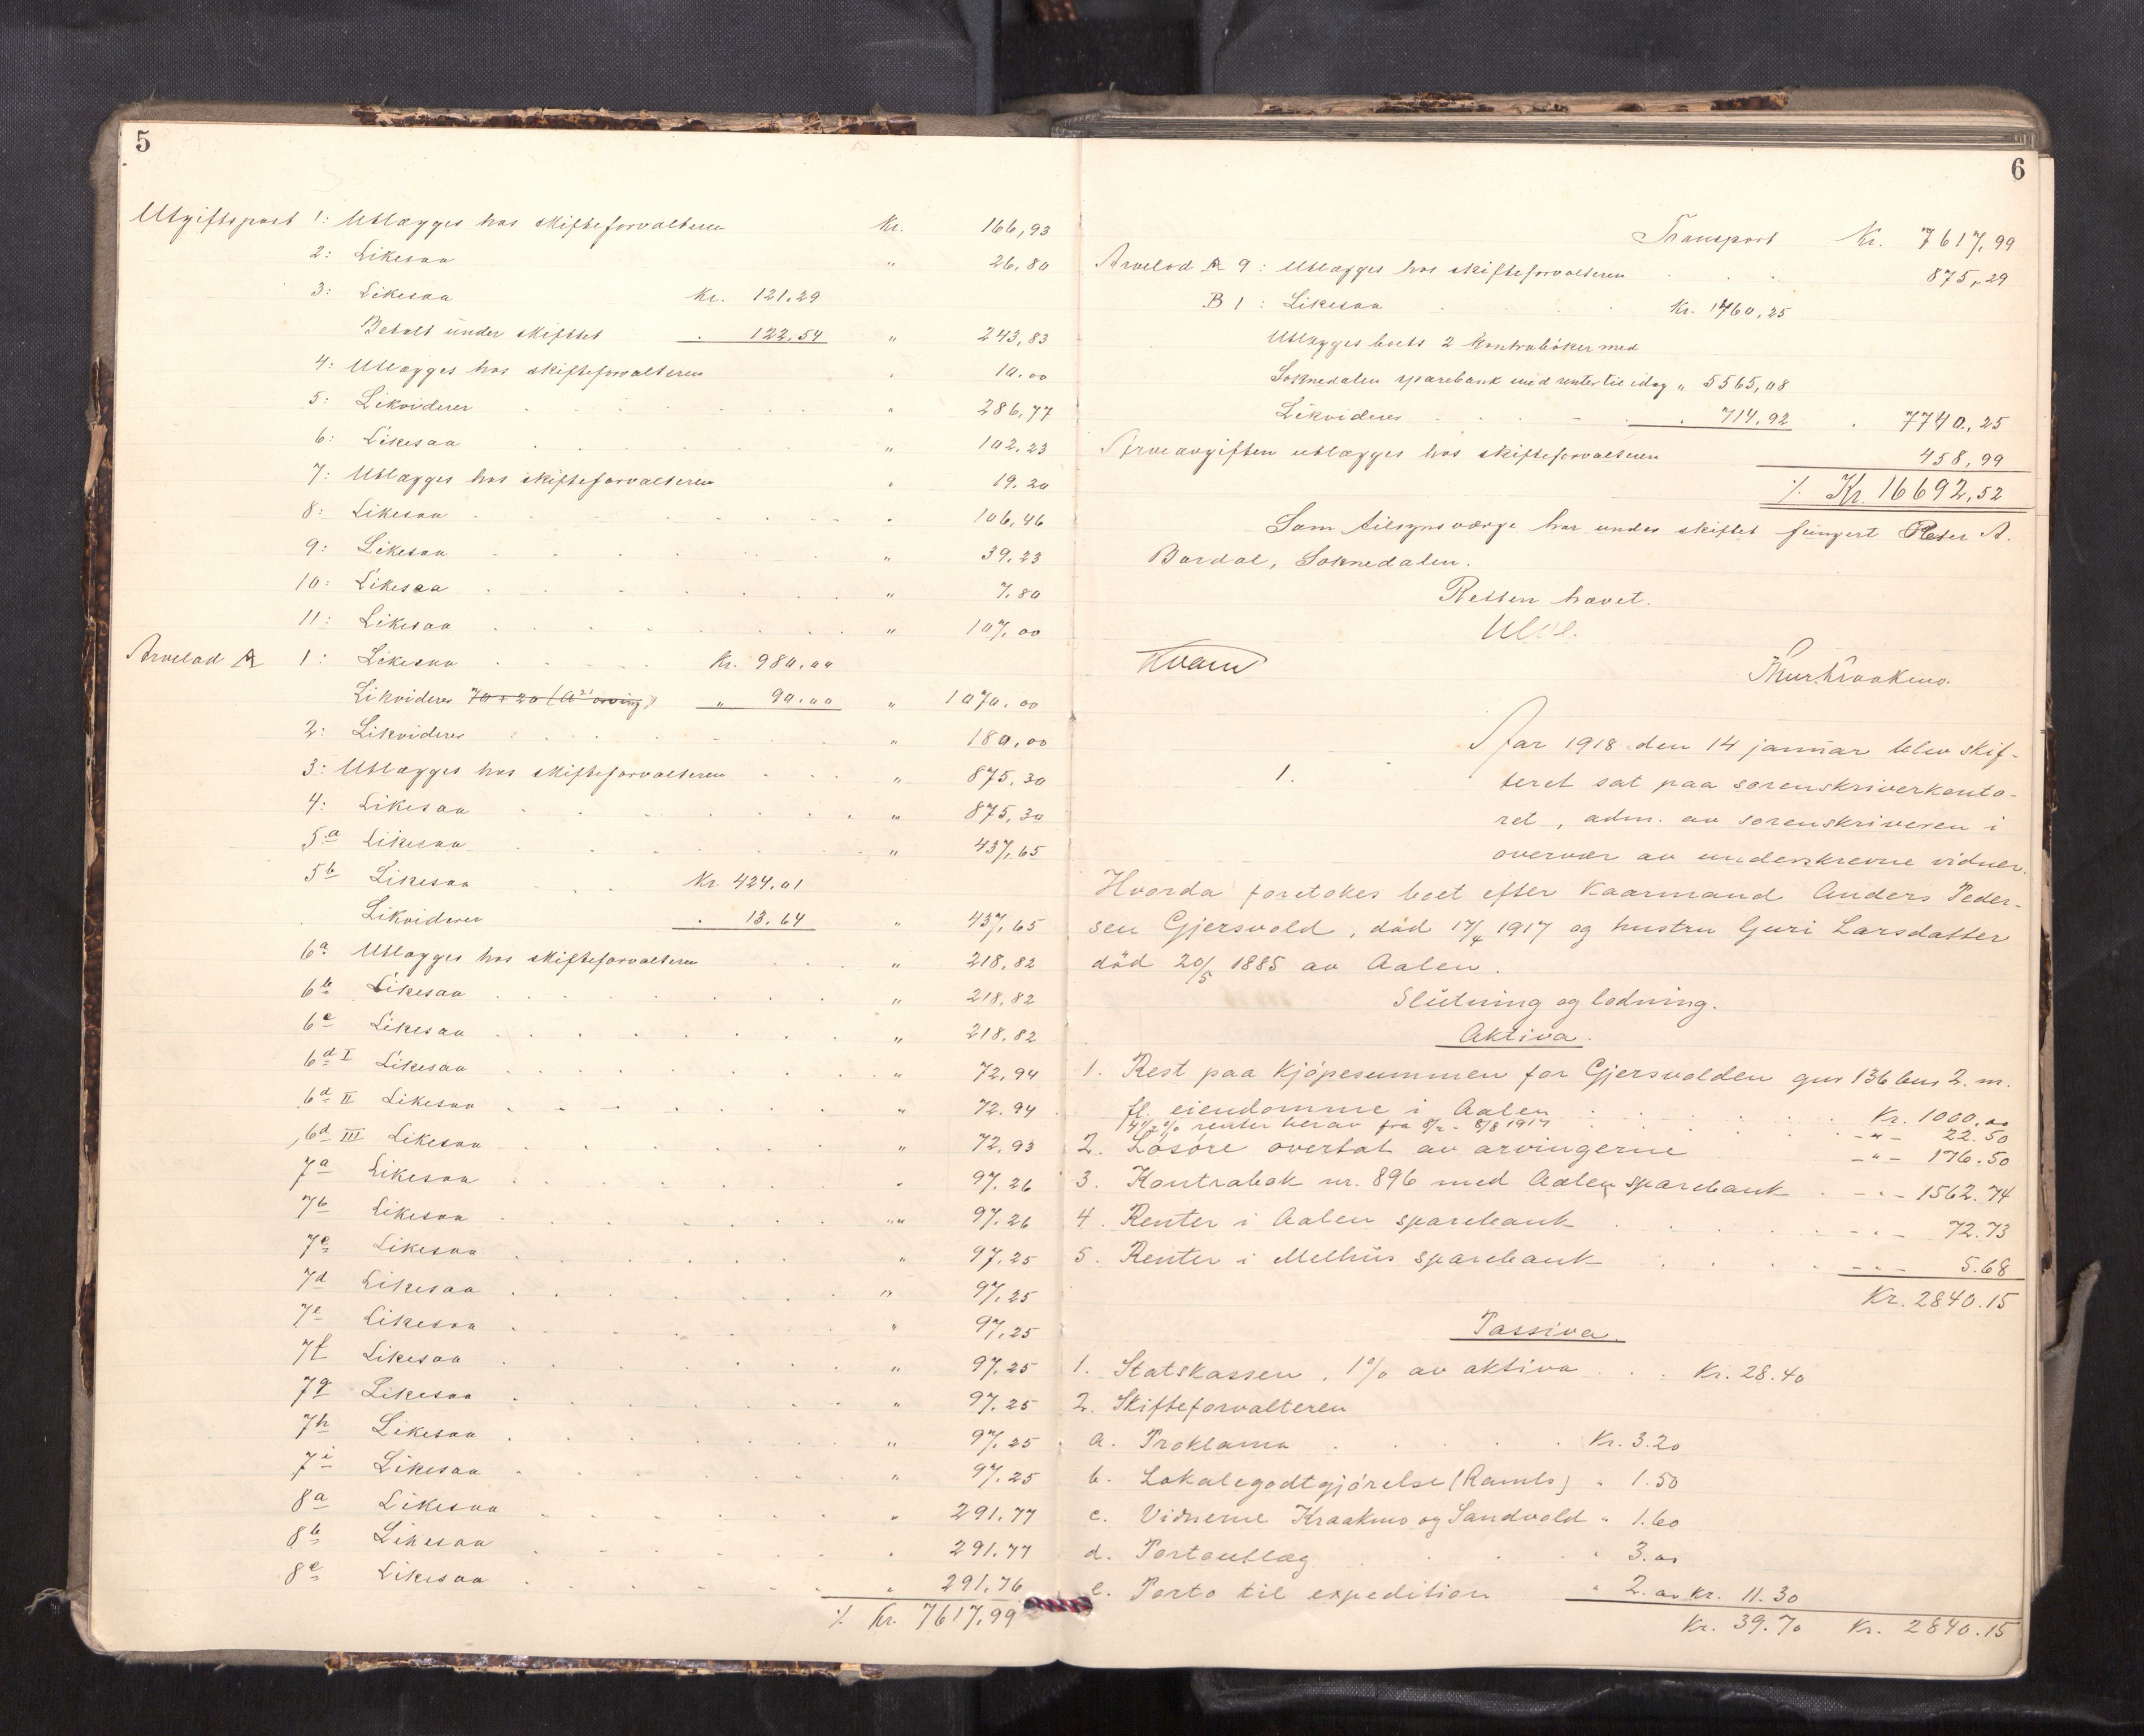 5
Utgiftspost 1: Utlægges hos skifteforvalteren Kr. 166,93
2: Likesaa " 26,80
3: Likesaa Kr. 121.29
Betalt under skiftet . 122,54 " 243,83
4: Utlægges hos skifteforvalteren . 10.00
5: Likviderer " 286,77
6: Likesaa " 102.23
7: Utlægges hos skifteforvalteren " 19.20
8: Likesaa " 106,46
9: Likesaa " 39.23
10: Likesaa " 7.80
11: Likesaa " 107.00
Arvelod A 1: Likesaa Kr. 980.00
Likviderer 70 + 20 (A2' arving) " 90.00 " 1070.00
2: Likviderer " 180,00
3: Utlægges hos skifteforvalteren " 875,30
4: Likesaa " 875,30
5a Likesaa " 437,65
5b Likesaa Kr. 424.01
Likviderer . 13.64 " 437,65
6a Utlægges hos skifteforvalteren " 218,82
6b Likesaa " 218,82
6c Likesaa " 218.82
6d I Likesaa " 72,94
6d II Likesaa " 72.94
6d III Likesaa " 72,93
7a Likesaa " 97.26
7b Likesaa " 97.26
7c Likesaa " 97.25
7d Likesaa " 97,25
7e Likesaa " 97,25
7f Likesaa " 97,25
7g Likesaa " 97.25
7h Likesaa " 97,25
7i Likesaa " 97.25
8a Likesaa " 291.77
8b Likesaa " 291.77
8c Likesaa " 291,76
./. Kr. 7617,99
6
Transport Kr. 7617,99
Arvelod A 9: Utlægges hos skifteforvalteren 875,29
B 1: Likesaa Kr. 1460,25
Utlægges boets 2 kontrabøker med
Soknedalen sparebank med renter til idag " 5565,08
Likviderer . 714,92 . 7740,25
Arveavgiften utlægges hos skifteforvalteren 458,99
./. Kr. 16692,52
Som tilsynsværge har under skiftet fungert Peter A.
Bardal, Soknedalen.
Retten hævet.
Kvam Thur. Kraakmo.
Aar 1918 den 14 januar blev skif-
1. teret sat paa sorenskriverkonto-
ret, adm. av sorenskriveren i
overvær av underskrevne vidner.
Hvorda foretokes boet efter kaarmand Anders Peder-
sen Gjersvold, død 17/4 1917 og hustru Guri Larsdatter
død 20/5 1885 av Aalen.
Slutning og lodning.
Aktiva.
1. Rest paa kjøpesummen for Gjersvolden gnr 136 bnr 2. m.
fl. eiendomme i Aalen Kr. 1000.00
4 1/2 % renter herav fra 8/2 - 8/8 1917 -"- 22.50
2. Løsøre overtat av arvingerne -"- 176.50
3. Kontrabok nr. 896 med Aalen sparebank -"- 1562.74
4. Renter i Aalen sparebank -"- 72.73
5. Renter i Melhus sparebank -"- 5.68
Kr. 2840.15
Passiva.
1. Statskassen, 1% av aktiva Kr. 28.40
2. Skifteforvalteren
a. Proklama Kr. 3.20
b. Lokalegodtgjørelse (Ramlo) " 1.50
c. Vidnerne Kraakmo og Sandvold " 1.60
d. Portoutlæg " 3.00
e. Porto til expedition " 2.00 Kr. 11.30
Kr. 39.70 Kr. 2840.15